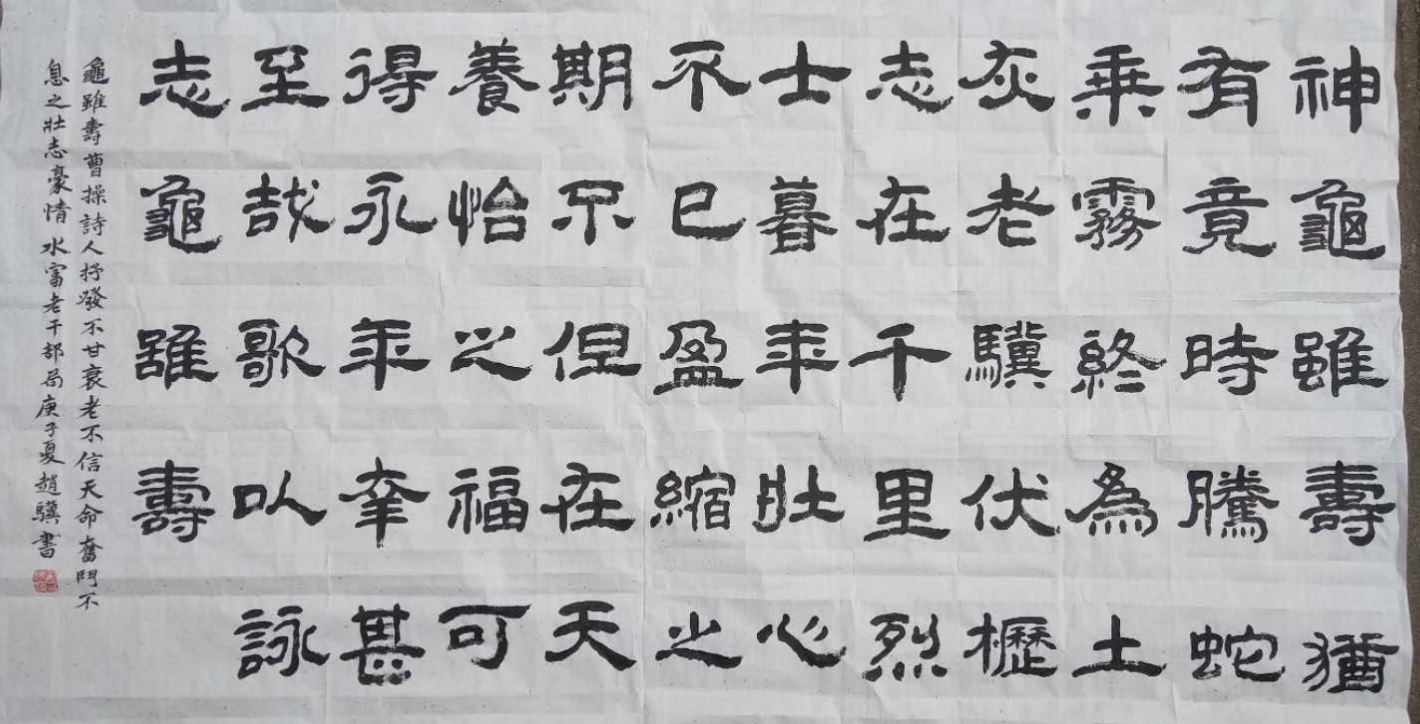 神龜雖壽猶
有竟時騰蛇
乗霧終為土
灰老驥伏櫪
志在千里烈
士暮年壯心
不已盈縮之
期不但在天
養怡之福可
得永年幸甚
至哉歌以詠
志龜雖壽
龜雖壽曹操詩人抒發不甘衰老不信天命奮鬥不
息之壯志豪情 水富老干部局庚子夏趙驥書